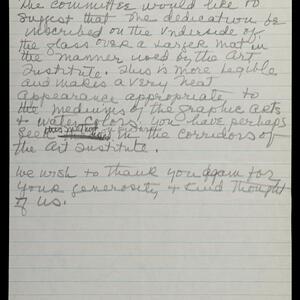 The committee would like to
suggest that the dedication be
inscribed on the underside of
the glass over a larger mat in
the manner used by the Art
Institute. This is more legible
and makes a very neat
appearance appropriate to
the mediums of the graphic arts
& water colors. You have perhaps
seen this method of inscription in the corridors of
the Art Institute.
We wish to thank you again for
your generosity & kind thought
of us.